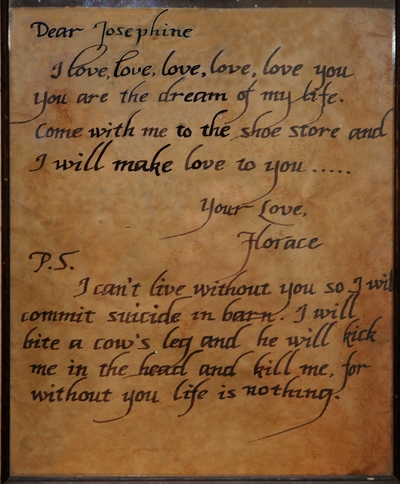 Dear Josephine
I love, love, love, love, love you
you are the dream of my life.
Come with me to the shoe store and
I will make love to you .....
Your Love,
Horace
P.S.
I can't live without you so I will
commit suicide in barn. I will
bite a cow's leg and he will kick
me in the head and kill me, for
without you life is nothing.